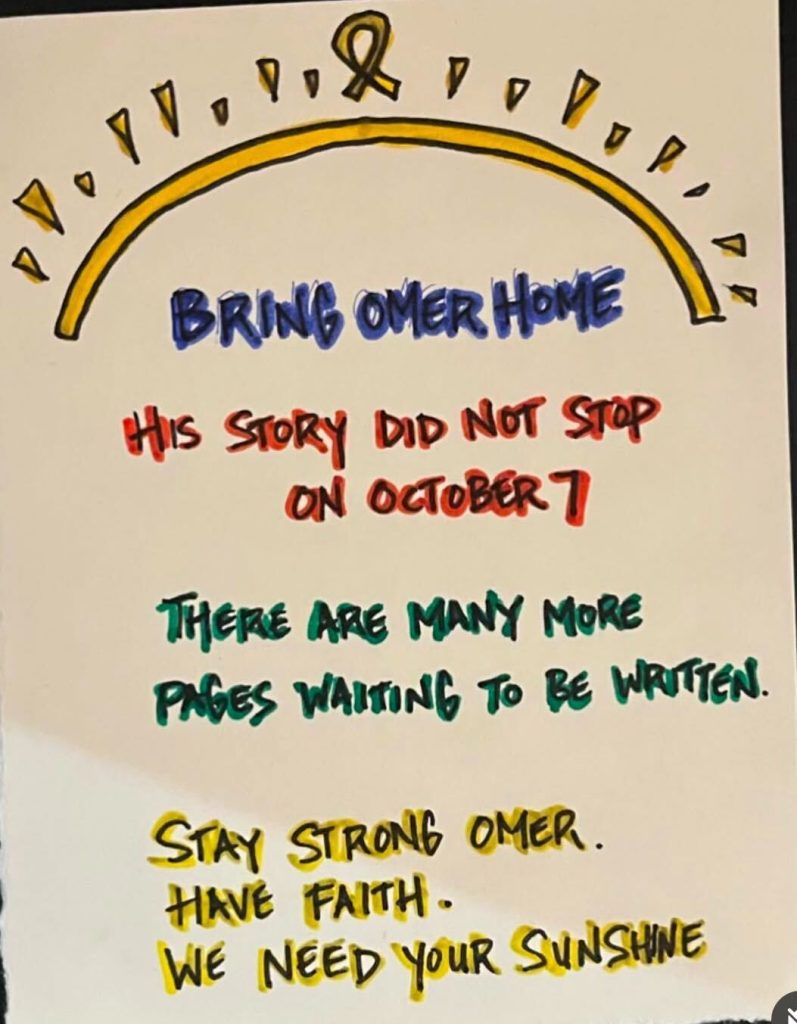 BRING OMER HOME
HIS STORY DID NOT STOP
ON OCTOBER 7
THERE ARE MANY MORE
PAGES WAITING TO BE WRITTEN.
STAY STRONG OMER.
HAVE FAITH.
WE NEED YOUR SUNSHINE